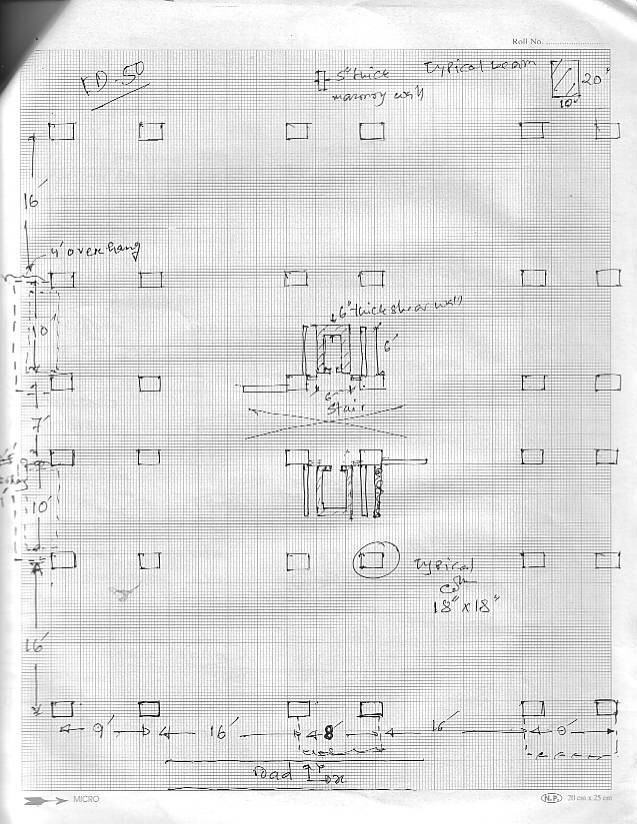 Roll No.
FD-50
5" thick
masonry wall
Typical beam
20"
10"
16'
4' overhang
10'
6" thick shear wall
6'
6'
Stair
7'
10'
Typical
18" x 18"
16'
9'
16'
8'
16'
road
MICRO
N.P. 20 cm x 25 cm